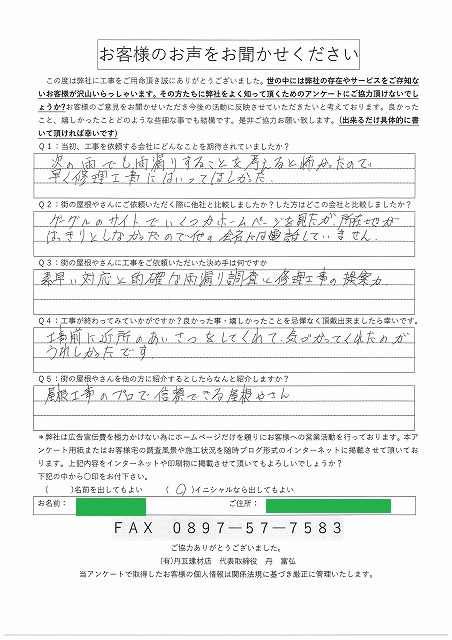 お客様のお声をお聞かせください
この度は弊社に工事をご用命頂き誠にありがとうございました。世の中には弊社の存在やサービスをご存知な
いお客様が沢山いらっしゃいます。その方たちに弊社をよく知って頂くためのアンケートにご協力頂けないでし
ょうか?お客様のご意見をお聞かせいただき今後の活動に反映させていただきたいと考えております。良かった
こと、嬉しかったことどのような些細な事でも結構です。是非ご協力お願い致します。(出来るだけ具体的に書
いて頂ければ幸いです)
Q1：当初、工事を依頼する会社にどんなことを期待されていましたか?
次の雨でも雨漏りすることを考えると怖かったので、
早く修理工事にはいってほしかた.
Q2：街の屋根やさんにご依頼いただく際に他社と比較しましたか?した方はどこの会社と比較しましたか?
グーグルのサイトでいくつかホームページを見たが、所在地が
はっきりとしなかったので他の会社には電話していません.
Q3：街の屋根やさんに工事をご依頼いただいた決め手は何ですか
素早い対応と的確な雨漏り調査と修理工事の提案力
Q4：工事が終わってみていかがですか?良かった事・嬉しかったことを忌憚なく頂戴出来ましたら幸いです。
工事前に近所のあいさつをしてくれて、気づかってくれたのが
うれしかったです
Q5：街の屋根やさんを他の方に紹介するとしたらなんと紹介しますか?
屋根工事のプロで信頼できる屋根やさん
＊弊社は広告宣伝費を極力かけない為にホームページだけを頼りにお客様への営業活動を行っております。本ア
ンケート用紙またはお客様宅の調査風景や施工状況を随時ブログ形式のインターネットに掲載させて頂いてお
ります。上記内容をインターネットや印刷物に掲載させて頂いてもよろしいでしょうか?
下記の中から〇印をお付下さい。
(　)名前を出してもよい　(〇)イニシャルなら出してもよい
お名前：　ご住所：
FAX 0897―57―7583
ご協力ありがとうございました。
(有)丹瓦建材店　代表取締役　丹　富弘
当アンケートで取得したお客様の個人情報は関係法規に基づき厳正に管理いたします。